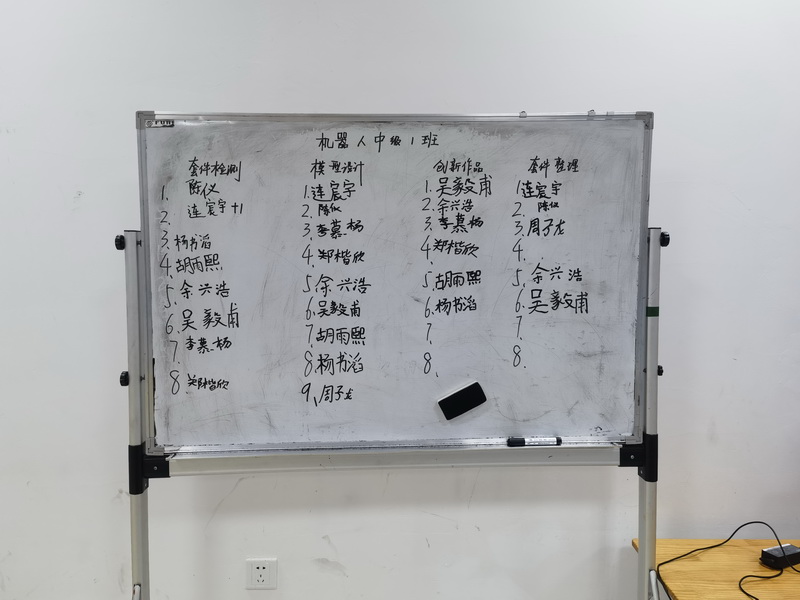 机器人中级1班
套件检测
1. 陈仪
2. 连宸宇+1
3. 杨书滔
4. 胡雨熙
5. 余兴浩
6. 吴毅甫
7. 李慕杨
8 郑楷欣
模型设计
1. 连宸宇
2. 陈仪
3. 李慕杨
4. 郑楷欣
5 余兴浩
6. 吴毅甫
7. 胡雨熙
8. 杨书滔
9、周子龙
创新作品
1. 吴毅甫
2. 余兴浩
3. 李慕杨
4. 郑楷欣
5. 胡雨熙
6. 杨书滔
7.
8.
套件整理
1 连宸宇
2. 陈仪
3. 周子龙
4.
5. 余兴浩
6. 吴毅甫
7
8.